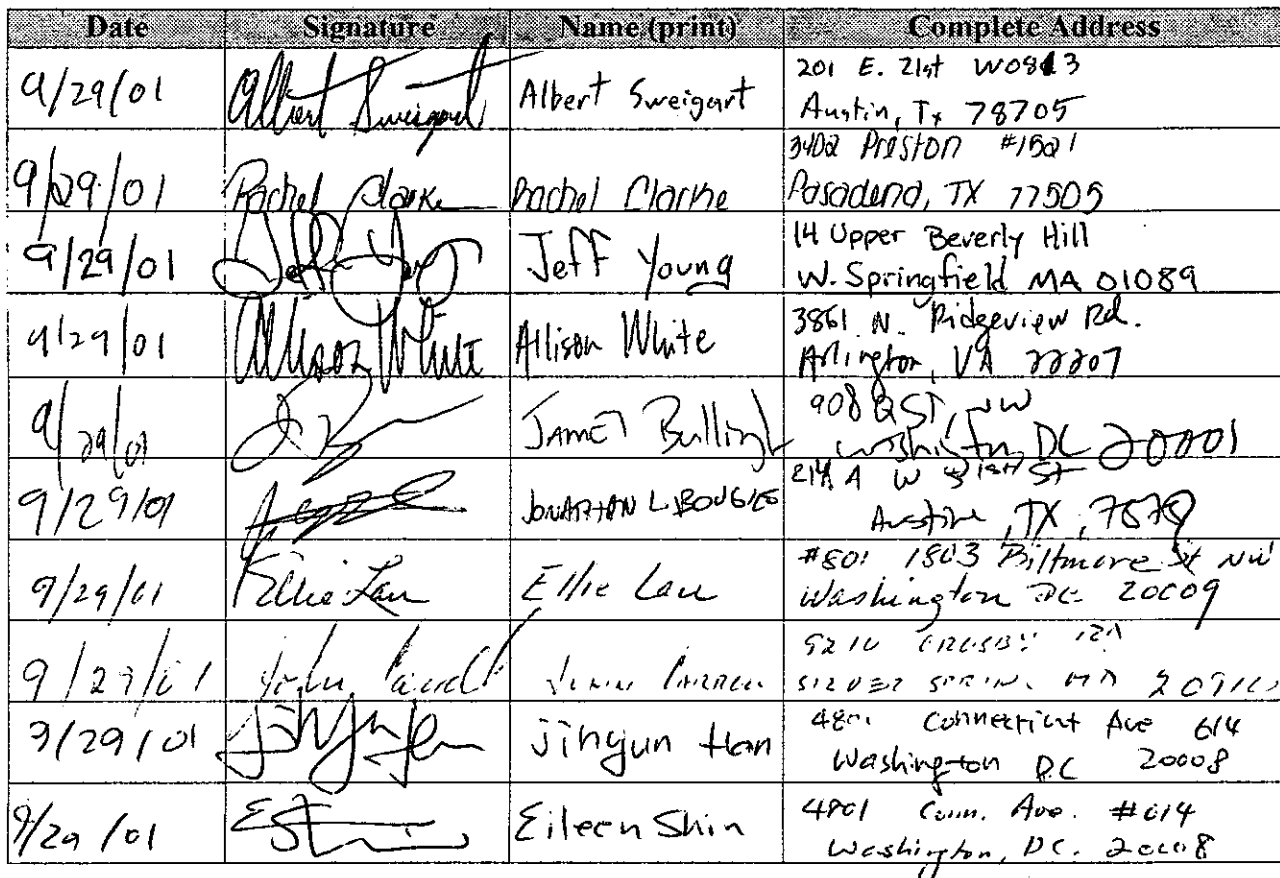 Date Signature Name (print) Complete Address
9/29/01 Albert Sweigart Albert Sweigart 201 E. 21st W0813
Austin, Tx 78705
9/29/01 Rachel Clarke Rachel Clarke 3402 Preston #1521
Pasadena, TX 77505
9/29/01 Jeff Young Jeff Young 14 Upper Beverly Hill
W. Springfield MA 01089
9/29/01 Allison White Allison White 3861 N. Ridgeview Rd.
Arlington, VA 22207
9/29/01 James 908 Q ST, NW
Washington, DC 20001
9/29/01 JONATHAN L. 214 A W 31st ST
Austin, TX,
9/29/01 Ellie Lau Ellie Lau #801 1803 Biltmore St NW
Washington DC 20009
9/29/01 John John 9210 CROSBY RD
SILVER SPRING MD
9/29/01 Jinyun Han Jinyun Han 4801 Connecticut Ave 614
Washington DC 20008
9/29/01 Eileen Shin 4801 Conn. Ave. #614
Washington, DC. 20008